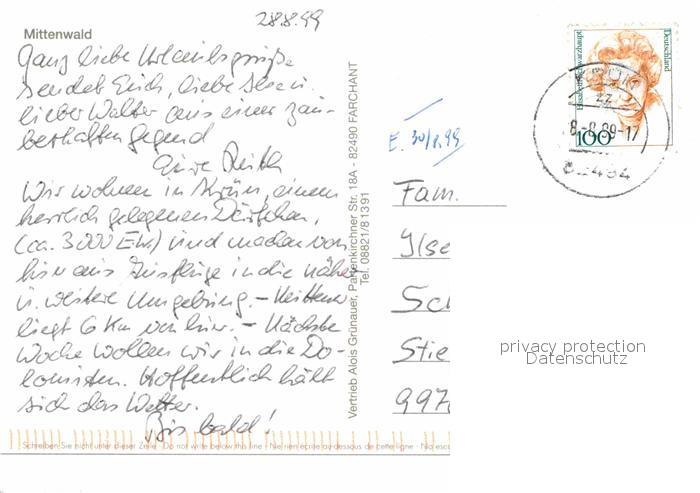 28.8.99
Mittenwald
Ganz liebe Urlaubsgrüße
sendet Euch, liebe Ilse u.
lieber Walter aus einer zau-
berhaften Gegend
Eure Ruth
Wir wohnen in Krün, einem
herrlich gelegenen Dörfchen,
(ca. 3000 EW.) und machen von
hier aus Ausflüge in die nähere
u. weitere Umgebung. –
liegt 6 Km von hier. – Nächste
Woche wollen wir in die Do-
lomiten. Hoffentlich hält
sich das Wetter.
Bis bald!
Schreiben Sie nicht unter dieser Zeile - Do not write below this line - Ne rien écrire au-dessous de cette ligne - No esc
Vertrieb Alois Grünauer, Partenkirchner Str. 18A - 82490 FARCHANT
Tel. 08821/81391
E. 30/8.99
Fam.
Ilse
Sch
Stie
997
Elisabeth Schwarzhaupt
Deutschland
100
KRÜN
zz
8.-8.99-17
82494
privacy protection
Datenschutz